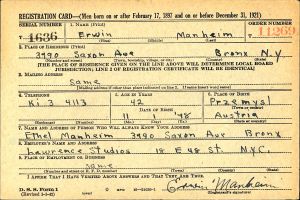 REGISTRATION CARD—(Men born on or after February 17, 1897 and on or before December 31, 1921)
SERIAL NUMBER 1. NAME (Print) ORDER NUMBER
T 1636 Erwin Manheim 11269
(First) (Middle) (Last)
2. PLACE OF RESIDENCE (Print)
3990 Saxon Ave Bronx N.Y.
(Number and street) (Town, township, village, or city) (County) (State)
[THE PLACE OF RESIDENCE GIVEN ON THE LINE ABOVE WILL DETERMINE LOCAL BOARD
JURISDICTION; LINE 2 OF REGISTRATION CERTIFICATE WILL BE IDENTICAL]
3. MAILING ADDRESS
Same
[Mailing address if other than place indicated on line 2. If same insert word same]
4. TELEPHONE 5. AGE IN YEARS 6. PLACE OF BIRTH
Ki. 3 4113 42 Przemysl
DATE OF BIRTH (Town or county)
Austria
(Exchange) (Number) (Mo.) (Day) (Yr.) (State or country)
7. NAME AND ADDRESS OF PERSON WHO WILL ALWAYS KNOW YOUR ADDRESS
Ethel Manheim 3990 Saxon Ave Bronx
8. EMPLOYER'S NAME AND ADDRESS
Lawrence Studios 18 E 48 St. N.Y.C.
9. PLACE OF EMPLOYMENT OR BUSINESS
same
(Number and street or R. F. D. number) (Town) (County) (State)
I AFFIRM THAT I HAVE VERIFIED ABOVE ANSWERS AND THAT THEY ARE TRUE.
D. S. S. Form 1
Erwin Manheim
(Registrant's signature)